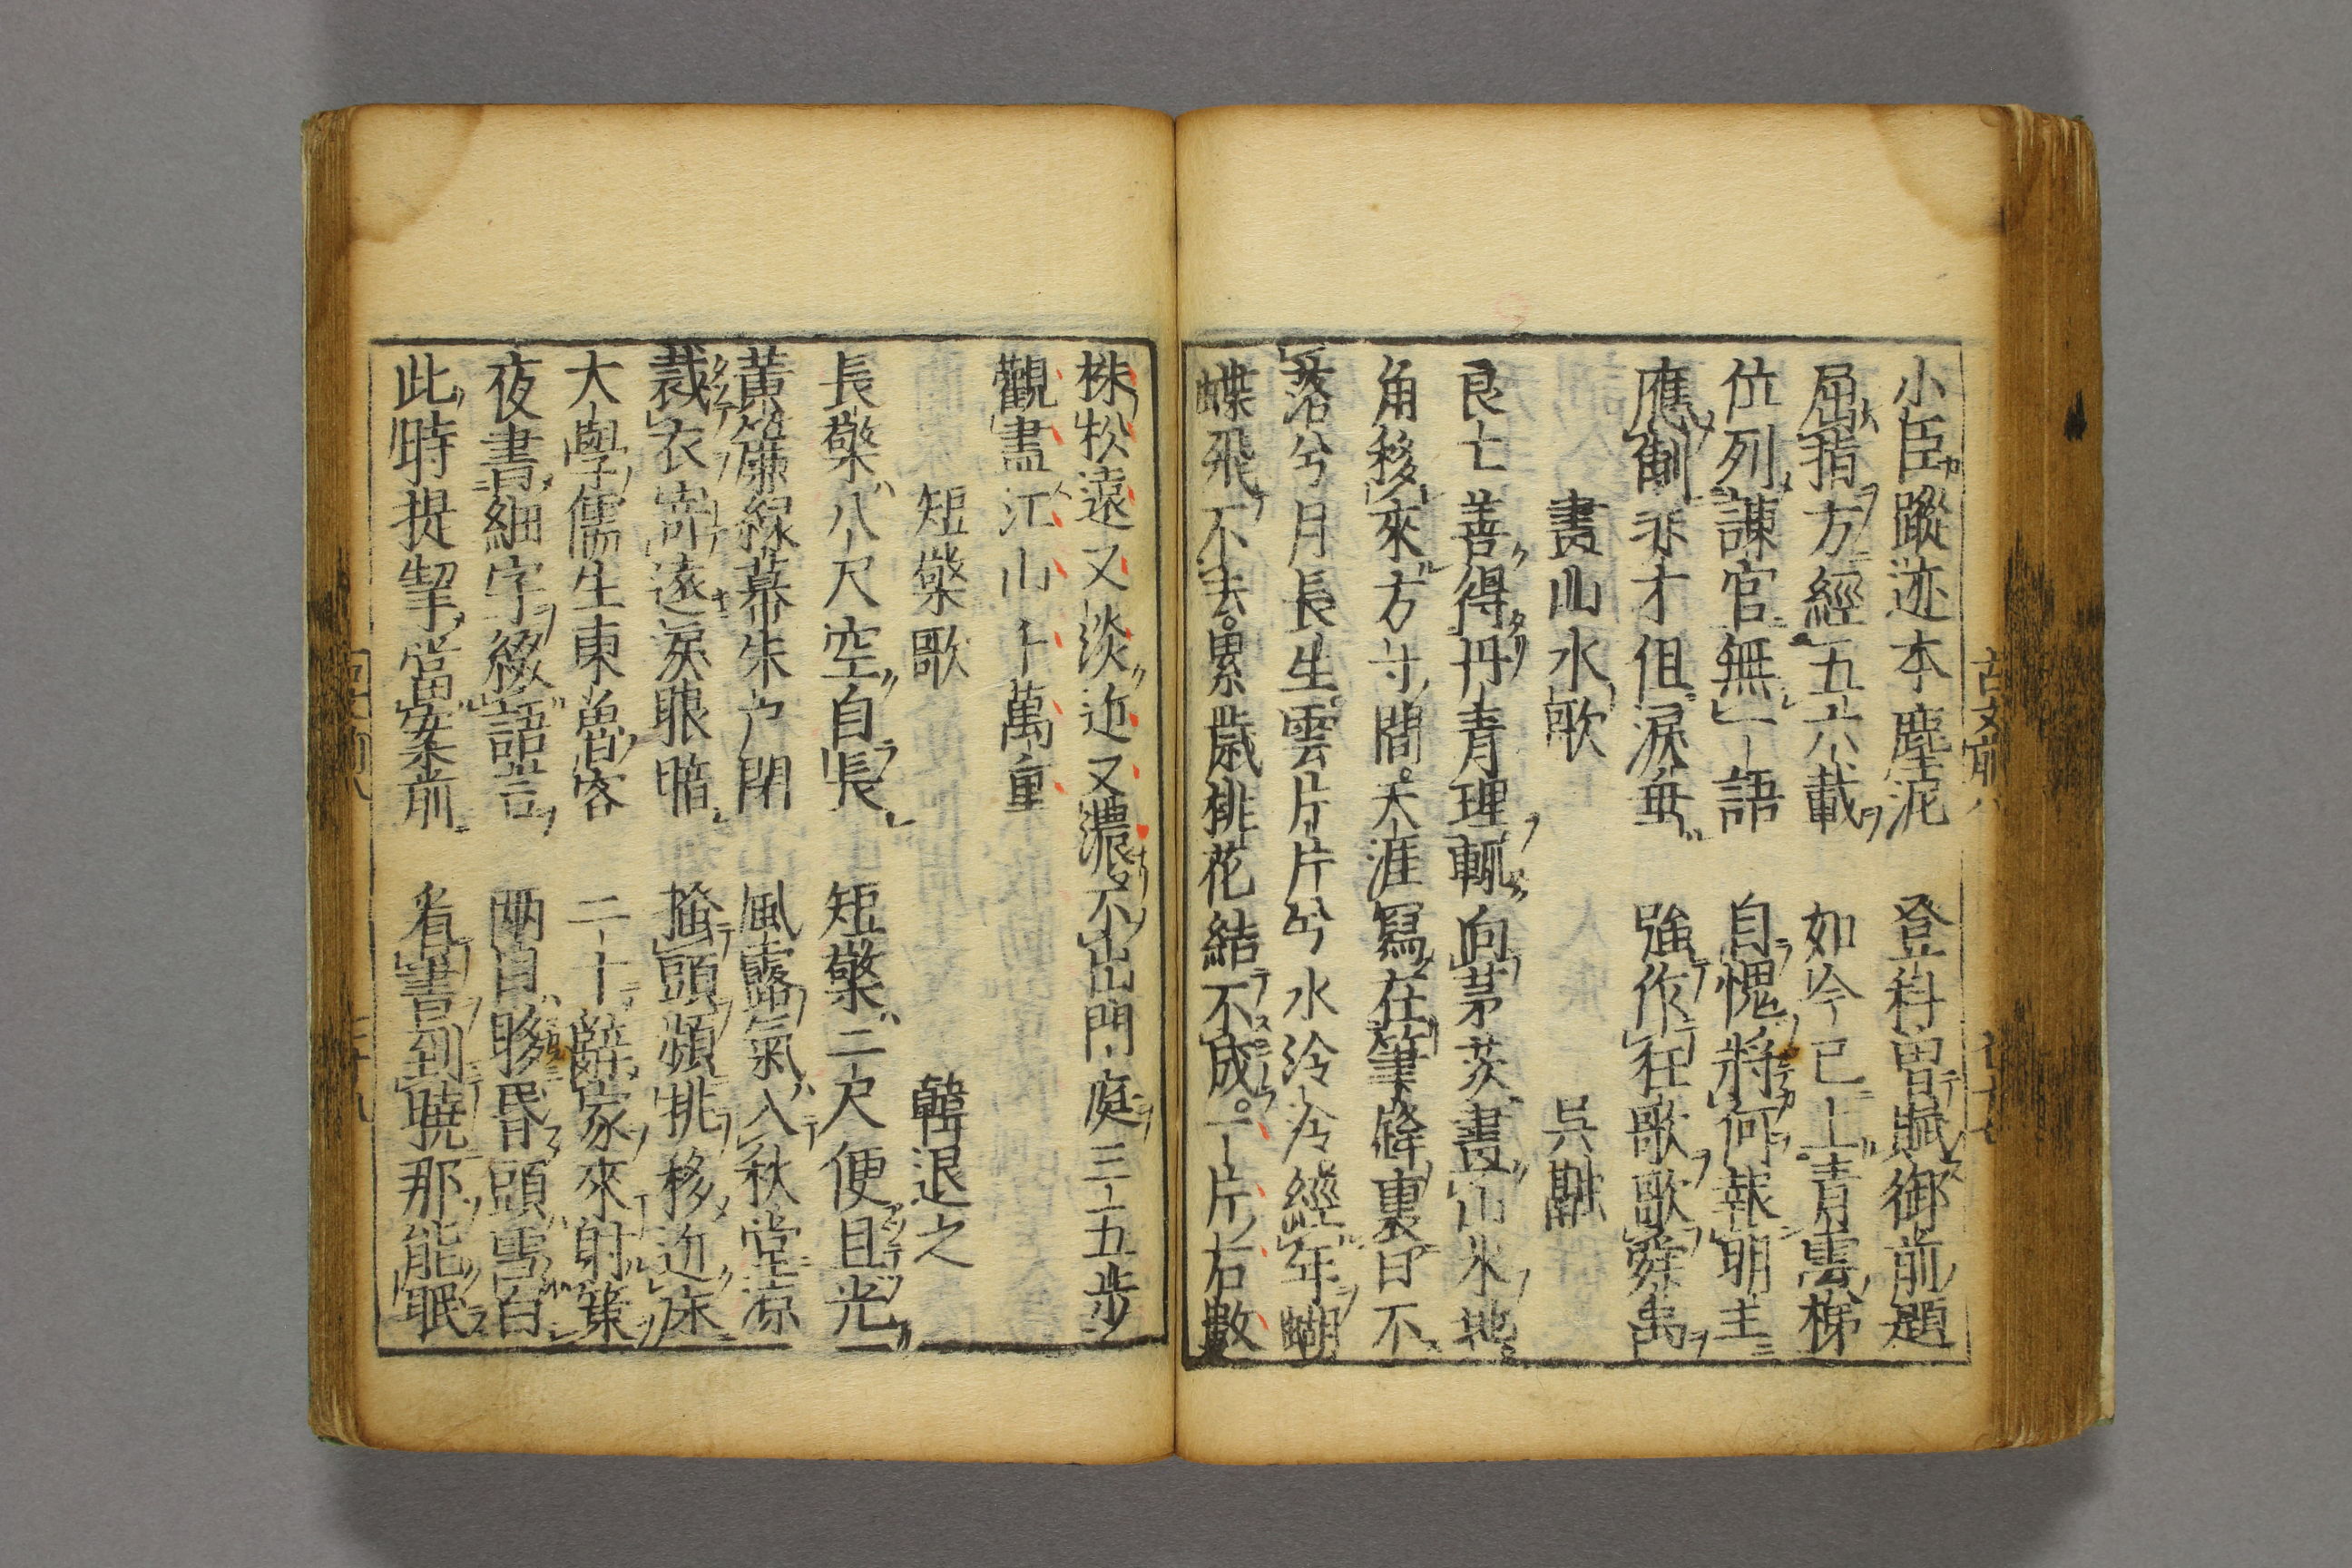 小臣蹤迹本塵泥　登科曽賦御前題
屈指方經五六載　如今已上青雲梯
位列諫官無一語　自愧將何報明主
應制非才但淚垂　強作狂歌歌舜禹
畫山水歌　吳融
良亡善得丹青理輒向茅茨畫山水地
角移來方寸間天涯冩在筆鋒裏日不
落兮月長生雲片片兮水泠泠經年蝴
蝶飛不去累歲桃花結不成一片石數
株松遠又淡近又濃不出門庭三五步
觀盡江山千萬重
短檠歌　韓退之
長檠八尺空自長　短檠二尺便且光
黃簾綠幕朱户閉　風露氣入秋堂凉
裁衣寄遠淚眼暗　搔頭頻挑移近床
大學儒生東魯客　二十辭家來射策
夜書細字綴語言　兩目眵昏頭雪白
此時提挈當案前　看書到曉那能眠